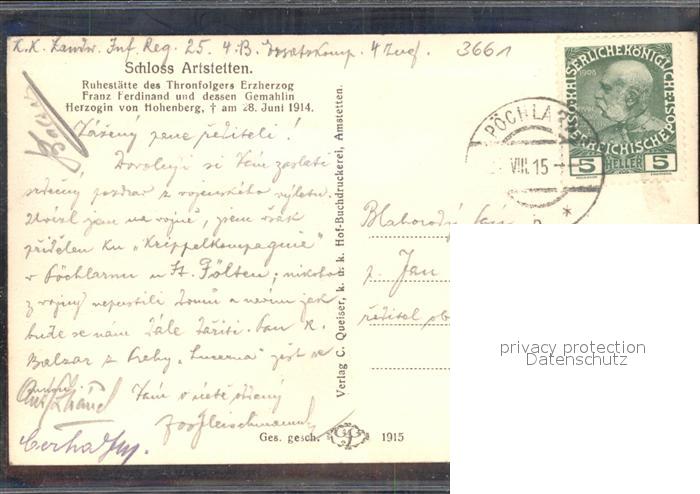 K.K. Landw. Inf. Reg. 25. 4.B. Ersatzkomp. 4 Zug. 3661
Schloss Artstetten.
Ruhestätte des Thronfolgers Erzherzog
Franz Ferdinand und dessen Gemahlin
Herzogin von Hohenberg, † am 28. Juni 1914.
Vážený pane řediteli!
Dovoluji si Vám zaslati
srdečný pozdrav z vojenského výletu.
jsem na vojně, jsem však
přidělen ku "Krippelkompagnie"
v Pöchlarnu u St. Pölten;
z vojny nepustili domů a nevím jak
bude se nám dále dařiti. Pan R.
Balzar z Prahy "Lucerna" jest
Vám v úctě oddaný
Fleischmann
Verlag C. Queiser, k. u. k. Hof-Buchdruckerei, Amstetten.
Ges. gesch. 1915
KAISERLICHE KÖNIGLICHE
ÖSTERREICHISCHE POST
1908
5 HELLER 5
PÖCHLA
VIII. 15
Blahorodý pán
p. Jan
ředitel
privacy protection
Datenschutz